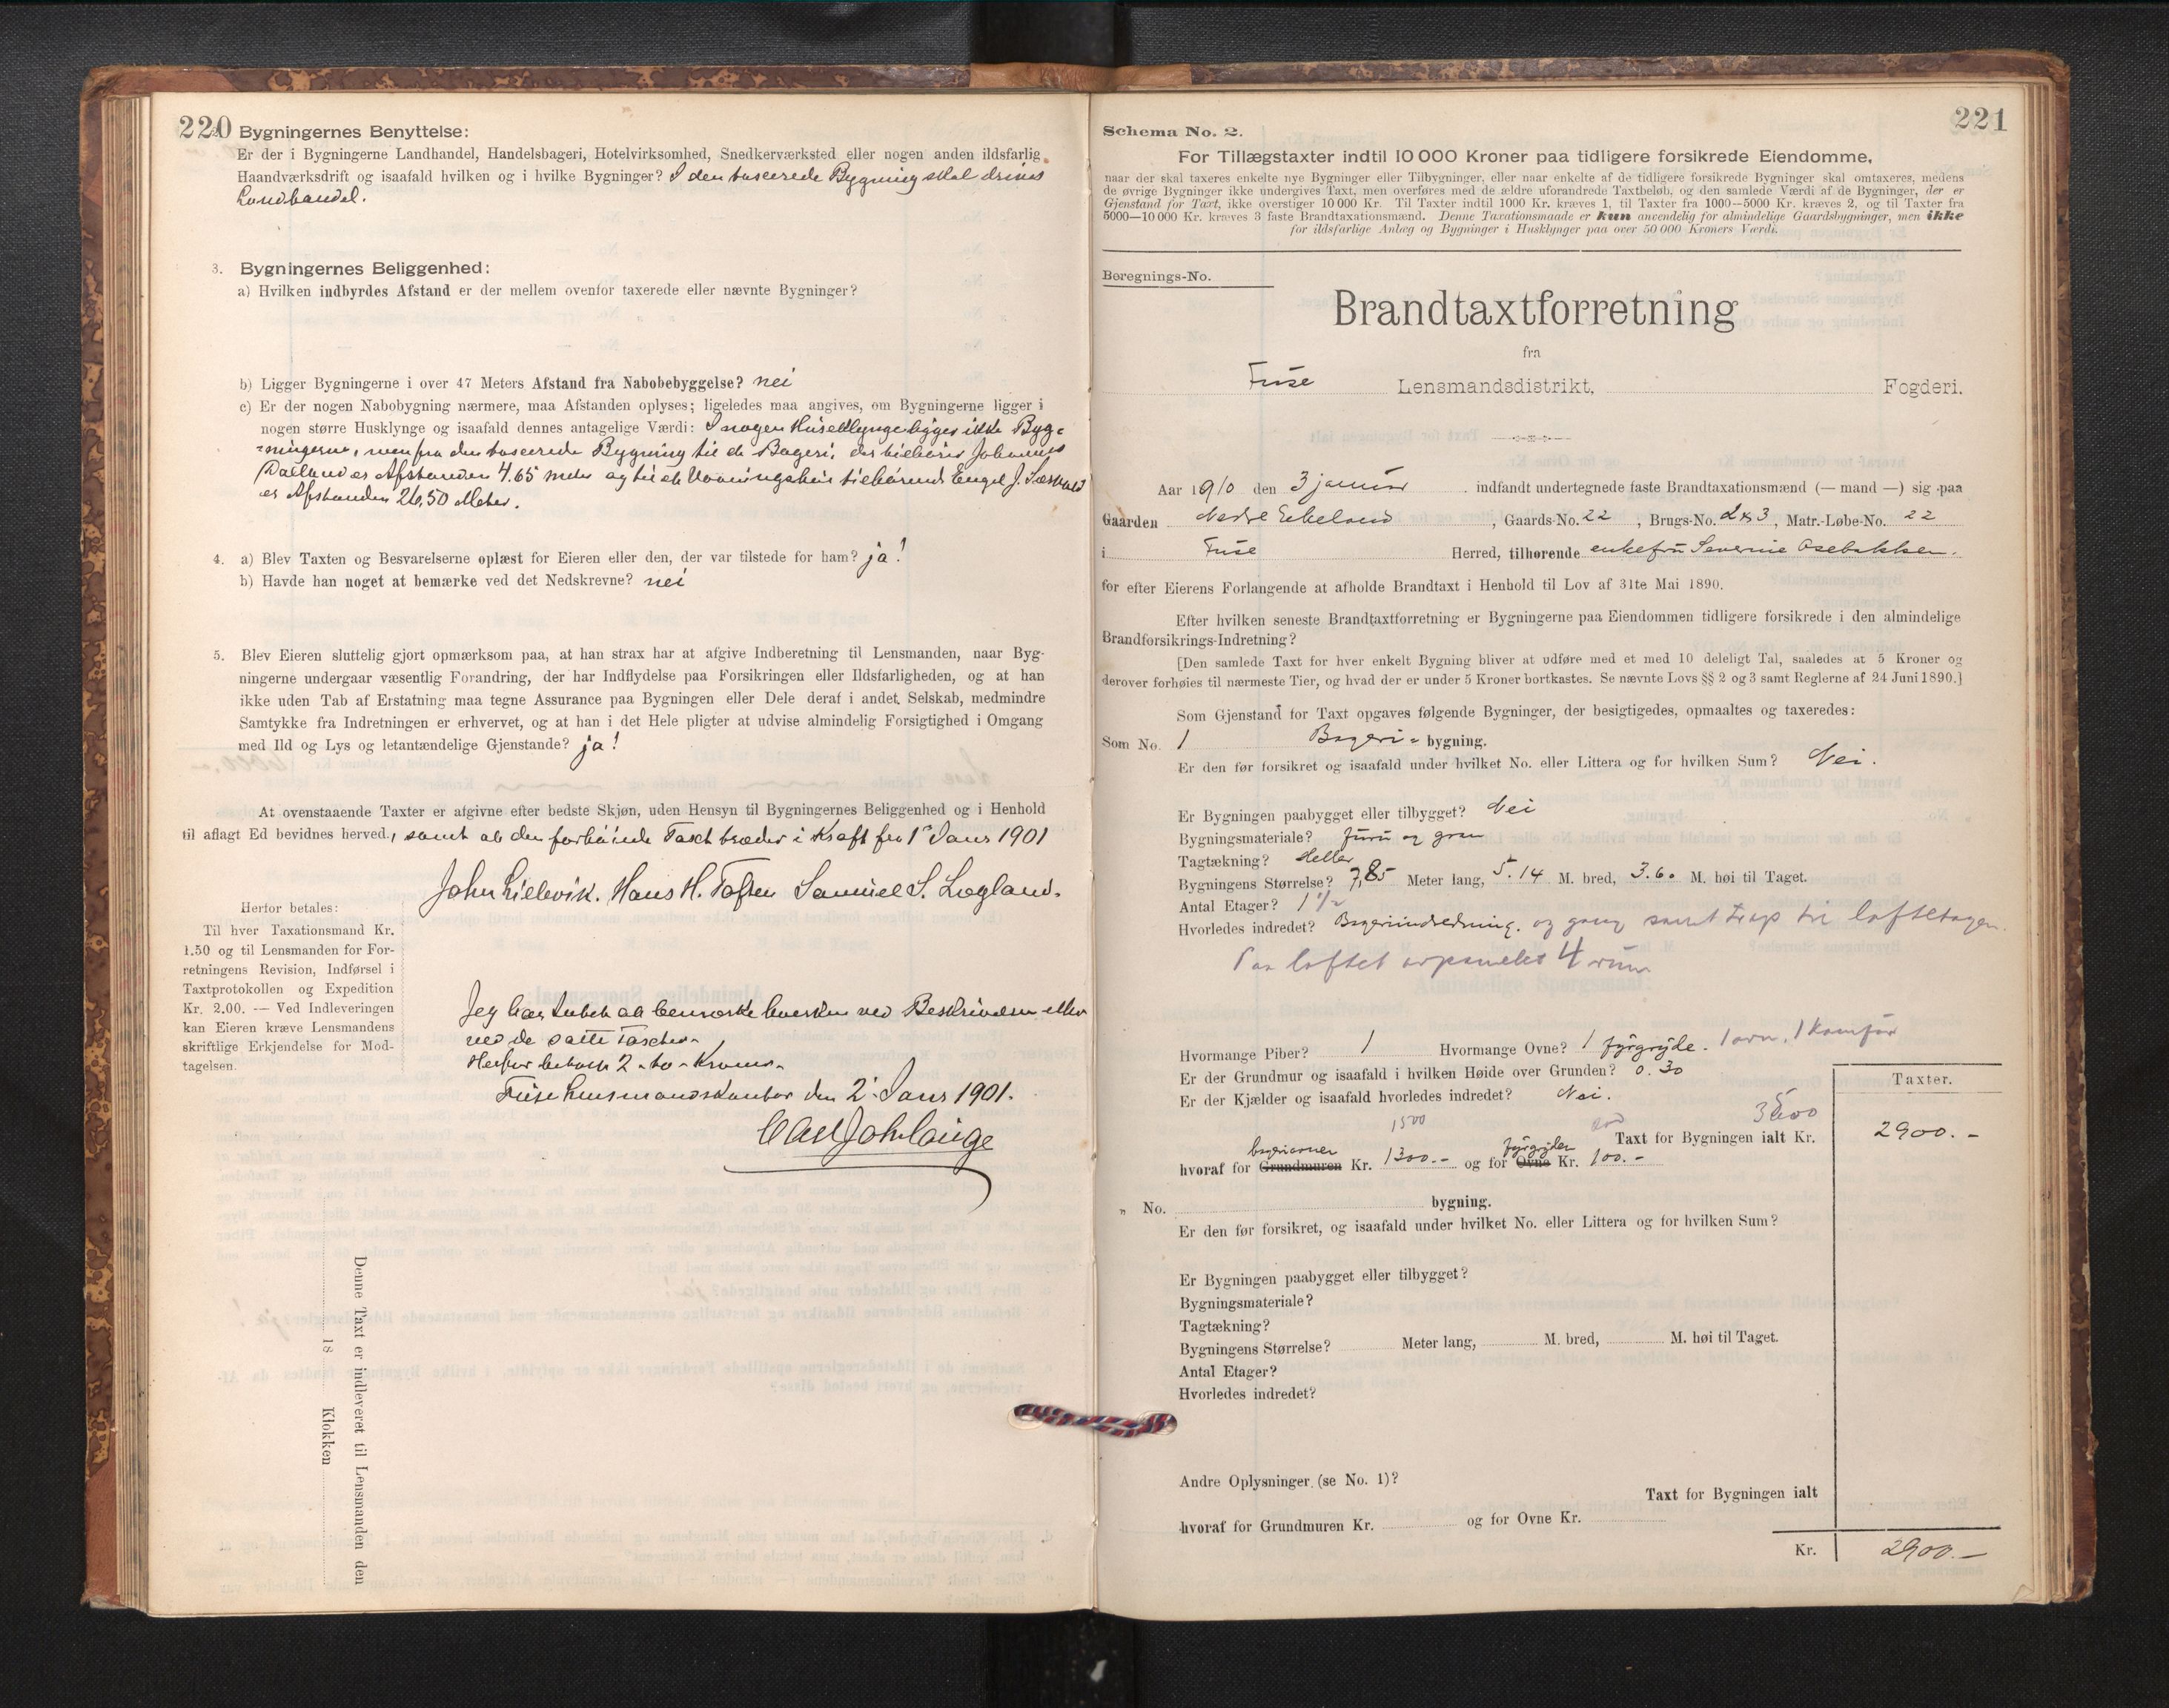 220
2. Bygningernes Benyttelse:
Er der i Bygningerne Landhandel, Handelsbageri, Hotelvirksomhed, Snedkerværksted eller nogen anden ildsfarlig
Haandværksdrift og isaafald hvilken og i hvilke Bygninger? I den taxerede Bygning skal drives
Landhandel.
3. Bygningernes Beliggenhed:
a) Hvilken indbyrdes Afstand er der mellem ovenfor taxerede eller nævnte Bygninger?
b) Ligger Bygningerne i over 47 Meters Afstand fra Nabobebyggelse? nei
c) Er der nogen Nabobygning nærmere, maa Afstanden oplyses; ligeledes maa angives, om Bygningerne ligger i
nogen større Husklynge og isaafald dennes antagelige Værdi: I nogen Huseklynge ligger ikke Byg-
ningerne, men fra den taxerede Bygning til et Bageri, der tilhører Johannes
Dalland er Afstanden 4.65 meter og til et Vaaningshus tilhørende Engel J.
er Afstanden 26,50 Meter.
4. a) Blev Taxten og Besvarelserne oplæst for Eieren eller den, der var tilstede for ham? ja!
b) Havde han noget at bemærke ved det Nedskrevne? nei
5. Blev Eieren sluttelig gjort opmærksom paa, at han strax har at afgive Indberetning til Lensmanden, naar Byg-
ningerne undergaar væsentlig Forandring, der har Indflydelse paa Forsikringen eller Ildsfarligheden, og at han
ikke uden Tab af Erstatning maa tegne Assurance paa Bygningen eller Dele deraf i andet Selskab, medmindre
Samtykke fra Indretningen er erhvervet, og at han i det Hele pligter at udvise almindelig Forsigtighed i Omgang
med Ild og Lys og letantændelige Gjenstande? ja!
At ovenstaaende Taxter er afgivne efter bedste Skjøn, uden Hensyn til Bygningernes Beliggenhed og i Henhold
til aflagt Ed bevidnes herved, samt at den forhøiede Taxt træder i Kraft fra 1 Janr 1901
John Lillevik. Hans H. Toften Samuel S. Løgland.
Herfor betales:
Til hver Taxationsmand Kr.
1.50 og til Lensmanden for For-
retningens Revision, Indførsel i
Taxtprotokollen og Expedition
Kr. 2.00. — Ved Indleveringen
kan Eieren kræve Lensmandens
skriftlige Erkjendelse for Mod-
tagelsen.
Jeg har Intet at bemærke hverken ved Beskrivelsen eller
ved de satte Taxter.
Herfor betalt 2 - to - Kroner.
Fuse Lensmandskontor den 2. Janr 1901.
Denne Taxt er indleveret til Lensmanden den
18 Klokken
221
Schema No. 2.
For Tillægstaxter indtil 10 000 Kroner paa tidligere forsikrede Eiendomme,
naar der skal taxeres enkelte nye Bygninger eller Tilbygninger, eller naar enkelte af de tidligere forsikrede Bygninger skal omtaxeres, medens
de øvrige Bygninger ikke undergives Taxt, men overføres med de ældre uforandrede Taxtbeløb, og den samlede Værdi af de Bygninger, der er
Gjenstand for Taxt, ikke overstiger 10 000 Kr. Til Taxter indtil 1000 Kr. kræves 1, til Taxter fra 1000—5000 Kr. kræves 2, og til Taxter fra
5000—10 000 Kr. kræves 3 faste Brandtaxationsmænd. Denne Taxationsmaade er kun anvendelig for almindelige Gaardsbygninger, men ikke
for ildsfarlige Anlæg og Bygninger i Husklynger paa over 50 000 Kroners Værdi.
Beregnings-No.
Brandtaxtforretning
fra
Fuse Lensmandsdistrikt, Fogderi.
Aar 1910 den 3 januar indfandt undertegnede faste Brandtaxationsmænd (— mand —) sig paa
Gaarden Nedre Eikeland, Gaards-No. 22, Brugs-No. 2 & 3, Matr.-Løbe-No. 22
i Fuse Herred, tilhørende enkefru Severine Osebakken.
for efter Eierens Forlangende at afholde Brandtaxt i Henhold til Lov af 31te Mai 1890.
Efter hvilken seneste Brandtaxtforretning er Bygningerne paa Eiendommen tidligere forsikrede i den almindelige
Brandforsikrings-Indretning?
[Den samlede Taxt for hver enkelt Bygning bliver at udføre med et med 10 deleligt Tal, saaledes at 5 Kroner og
derover forhøies til nærmeste Tier, og hvad der er under 5 Kroner bortkastes. Se nævnte Lovs §§ 2 og 3 samt Reglerne af 24 Juni 1890.]
Som Gjenstand for Taxt opgaves følgende Bygninger, der besigtigedes, opmaaltes og taxeredes:
Som No. 1 Bageri- bygning.
Er den før forsikret og isaafald under hvilket No. eller Littera og for hvilken Sum? Nei.
Er Bygningen paabygget eller tilbygget? Nei
Bygningsmateriale? furu og gran
Tagtækning? Heller
Bygningens Størrelse? 7,85 Meter lang, 5.14 M. bred, 3.60 M. høi til Taget.
Antal Etager? 1 1/2
Hvorledes indredet? Bageriindredning. og gang samt trap til loftetagen.
Paa loftet oppanelet 4 rum
Hvormange Piber? 1 Hvormange Ovne? 1 fyrgryde. 1 ovn, 1 komfur
Er der Grundmur og isaafald i hvilken Høide over Grunden? 0.30
Er der Kjælder og isaafald hvorledes indredet? Nei.
Taxter.
1500 3500
Taxt for Bygningen ialt Kr. 2900.-
bageriovner fyrgryden
hvoraf for Grundmuren Kr. 1300.- og for Ovne Kr. 100.-
" No. bygning.
Er den før forsikret, og isaafald under hvilket No. eller Littera og for hvilken Sum?
Er Bygningen paabygget eller tilbygget?
Bygningsmateriale?
Tagtækning?
Bygningens Størrelse? Meter lang, M. bred, M. høi til Taget.
Antal Etager?
Hvorledes indredet?
Andre Oplysninger (se No. 1)?
Taxt for Bygningen ialt
hvoraf for Grundmuren Kr. og for Ovne Kr.
Kr. 2900.-